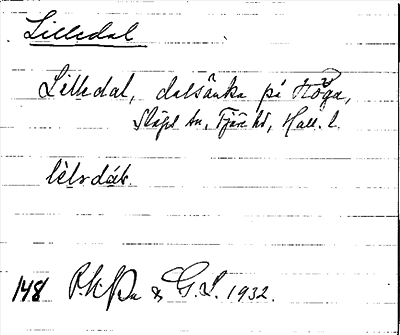 Lilledal
Lilledal, dalsänka på Höga,
Släps sn, Fjäre hd, Hall. l.
148 & G.S. 1932.